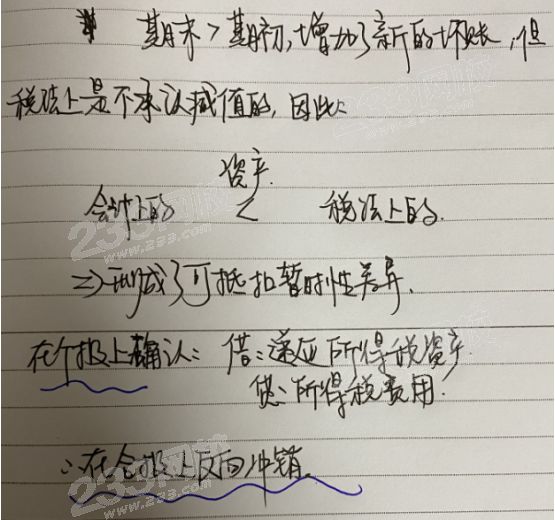 期末>期初,增加了新的坏账,但
税法上是不承认减值的,因此:
资产
会计上的 < 税法上的.
=>形成了可抵扣暂时性差异.
在个报上确认: 借:递延所得税资产
贷:所得税费用.
∴在合报上反向冲销.
233网校
www.233.com
233网校
www.233.com